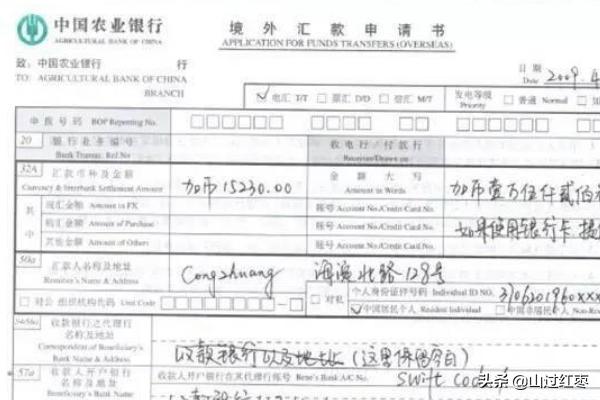 中国农业银行
AGRICULTURAL BANK OF CHINA
境外汇款申请书
APPLICATION FOR FUNDS TRANSFERS (OVERSEAS)
致：中国农业银行 行
TO: AGRICULTURAL BANK OF CHINA
BRANCH
日期
Date 2009.4
电汇 T/T 票汇 D/D 信汇 M/T
发电等级
Priority
普通 Normal
申报号码 BOP Reporting No.
20 银行业务编号
Bank Transac. Ref.No
收电行/付款行
Receiver/Drawn on
32A 汇款币种及金额
Currency & Interbank Settlement Amount
加币15230.00
金额大写
Amount in Words
加币壹万伍仟贰佰
其中
现汇金额 Amount in FX
账号 Account No./Credit Card No.
购汇金额 Amount of Purchase
账号 Account No./Credit Card No.
如果使用银行卡
其他金额 Amount of Others
账号 Account No./Credit Card No.
50a 汇款人名称及地址
Remitter's Name & Address
海滨北路128号
对公 组织机构代码 Unit Code
对私
个人身份证件号码 Individual ID NO.
3106201960xxx
中国居民个人 Resident Individual
中国非居民个人
54/56a 收款银行之代理行
名称及地址
Correspondent of Beneficiary's
Bank Name & Address
收款银行以及地址（这里保留空白）
57a 收款人开户银行
名称及地址
Beneficiary's Bank
收款人开户银行在其代理行账号 Bene's Bank A/C No.
swift code
头条 @山过红枣